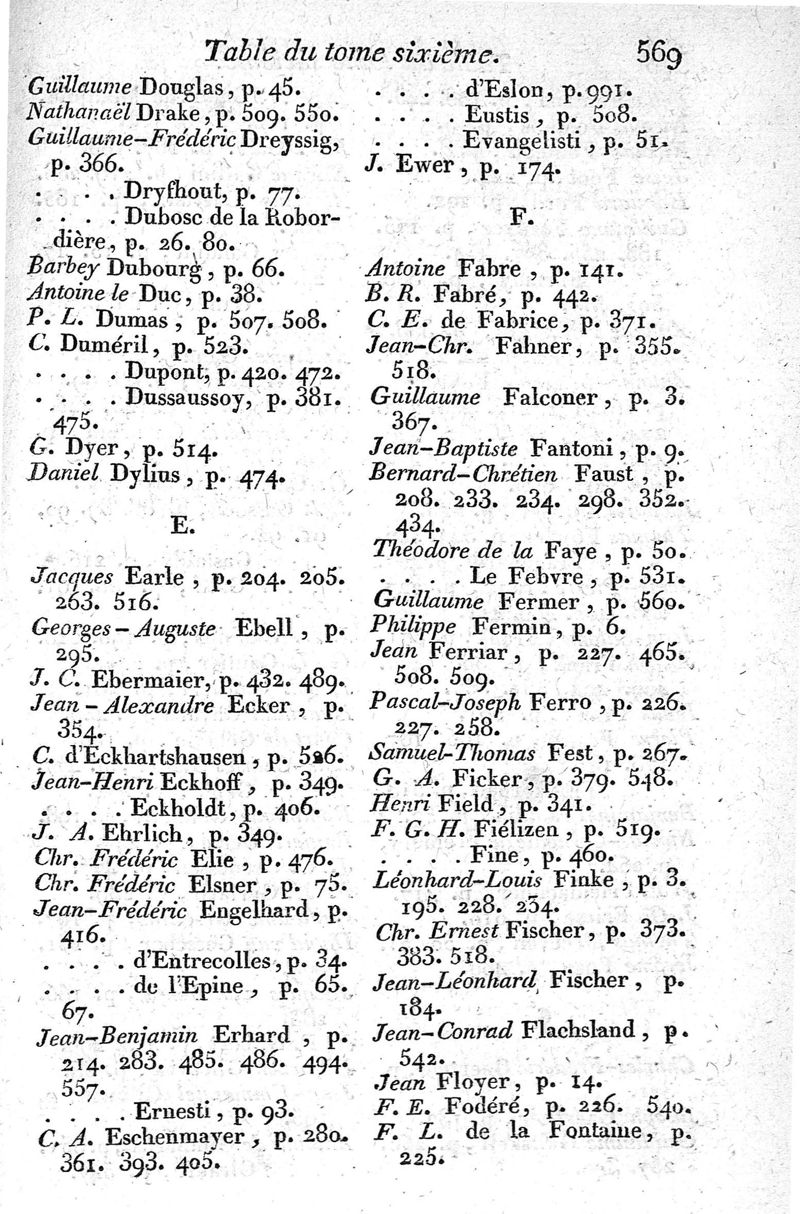 Table du tome sixième. 569
Guillaume Douglas, p. 45.
Nathanaël Drake, p. 509. 550.
Guillaume-Frédéric Dreyssig,
p. 366.
. . . . Dryfhout, p. 77.
. . . . Dubosc de la Robor-
dière, p. 26. 80.
Barbey Dubourg, p. 66.
Antoine le Duc, p. 38.
P. L. Dumas, p. 507. 508.
C. Duméril, p. 523.
. . . . Dupont, p. 420. 472.
. . . . Dussaussoy, p. 381.
475.
G. Dyer, p. 514.
Daniel Dylius, p. 474.
E.
Jacques Earle, p. 204. 205.
263. 516.
Georges-Auguste Ebell, p.
295.
J. C. Ebermaier, p. 432. 489.
Jean-Alexandre Ecker, p.
354.
C. d'Eckhartshausen, p. 526.
Jean-Henri Eckhoff, p. 349.
. . . . Eckholdt, p. 406.
J. A. Ehrlich, p. 349.
Chr. Frédéric Elie, p. 476.
Chr. Frédéric Elsner, p. 75.
Jean-Frédéric Engelhard, p.
416.
. . . . d'Entrecolles, p. 34.
. . . . de l'Epine, p. 65.
67.
Jean-Benjamin Erhard, p.
214. 283. 485. 486. 494.
557.
. . . . Ernesti, p. 93.
C. A. Eschenmayer, p. 280.
361. 393. 405.
. . . . d'Eslon, p. 991.
. . . . Eustis, p. 508.
. . . . Evangelisti, p. 51.
J. Ewer, p. 174.
F.
Antoine Fabre, p. 141.
B. R. Fabré, p. 442.
C. E. de Fabrice, p. 371.
Jean-Chr. Fahner, p. 355.
518.
Guillaume Falconer, p. 3.
367.
Jean-Baptiste Fantoni, p. 9.
Bernard-Chrétien Faust, p.
208. 233. 234. 298. 352.
434.
Théodore de la Faye, p. 50.
. . . . Le Febvre, p. 531.
Guillaume Fermer, p. 560.
Philippe Fermin, p. 6.
Jean Ferriar, p. 227. 465.
508. 509.
Pascal-Joseph Ferro, p. 226.
227. 258.
Samuel-Thomas Fest, p. 267.
G. A. Ficker, p. 379. 548.
Henri Field, p. 341.
F. G. H. Fiélizen, p. 519.
. . . . Fine, p. 460.
Léonhard-Louis Finke, p. 3.
195. 228. 254.
Chr. Ernest Fischer, p. 373.
383. 518.
Jean-Léonhard Fischer, p.
184.
Jean-Conrad Flachsland, p.
542.
Jean Floyer, p. 14.
F. E. Fodéré, p. 226. 540.
F. L. de la Fontaine, p.
225.